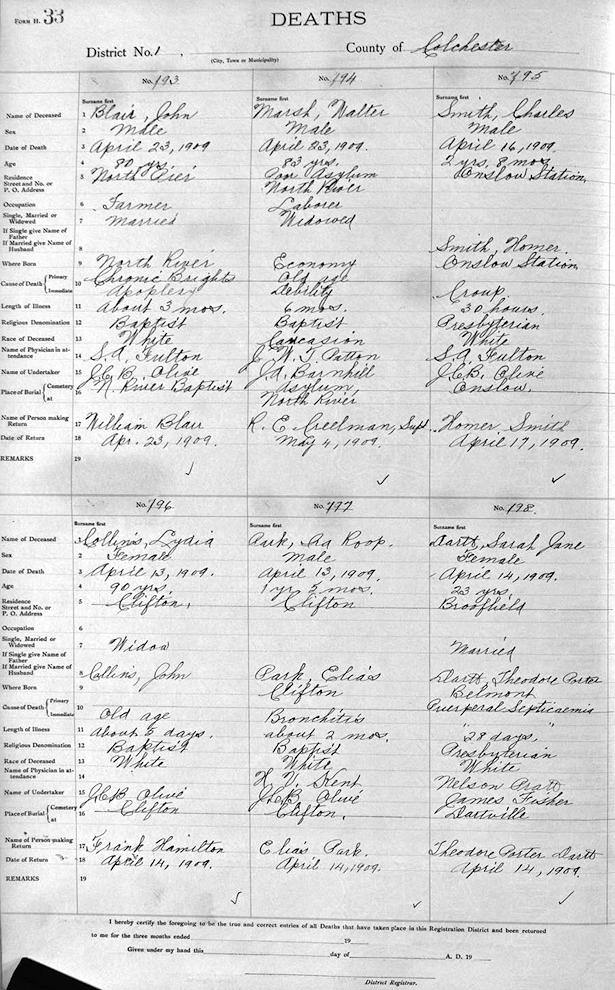 FORM H. 33
DEATHS
District No. 1, County of Colchester
(City, Town or Municipality)
No. 193 No. 194 No. 195
Surname first Surname first Surname first
Name of Deceased 1 Blair, John Marsh, Walter Smith, Charles
Sex 2 Male Male Male
Date of Death 3 April 23, 1909 April 23, 1909. April 16, 1909.
Age 4 80 yrs. 83 yrs. 2 yrs. 8 mos.
Residence Street and No. or P. O. Address 5 North River Poor Asylum Onslow Station,
North River
Occupation 6 Farmer Laborer
Single, Married or Widowed 7 Married Widowed
If Single give Name of Father
If Married give Name of Husband 8 Smith, Homer
Where Born 9 North River Economy Onslow Station,
Cause of Death Primary Immediate 10 Chronic Brights Old age
Apoplexy Debility Croup
Length of Illness 11 about 3 mos. 6 mos. 30 hours.
Religious Denomination 12 Baptist Baptist Presbyterian
Race of Deceased 13 White Caucasion White
Name of Physician in attendance 14 S. A. Fulton J. W. T. Patton S. A. Fulton
Name of Undertaker 15 J.C.B. Olive J. A. Barnhill J.C.B. Olive
Place of Burial Cemetery at 16 N. River Baptist Asylum, Onslow.
North River
Name of Person making Return 17 William Blair R. E. Creelman, Supt. Homer Smith
Date of Return 18 Apr. 23, 1909. May 4, 1909. April 17, 1909.
REMARKS 19
No. 196 No. 197 No. 198.
Surname first Surname first Surname first
Name of Deceased 1 Collins, Lydia Park, Roop. Dartt, Sarah Jane
Sex 2 Female Male Female
Date of Death 3 April 13, 1909. April 13, 1909. April 14, 1909.
Age 4 90 yrs. 1 yr 5 mos. 23 yrs.
Residence Street and No. or P. O. Address 5 Clifton, Clifton Brookfield
Occupation 6
Single, Married or Widowed 7 Widow Married
If Single give Name of Father
If Married give Name of Husband 8 Collins, John Park, Elias Dartt, Theodore Porter
Where Born 9 Clifton Belmont
Cause of Death Primary Immediate 10 Old age Bronchitis Puerperal Septicaemia
Length of Illness 11 about 5 days. about 2 mos. "28 days,"
Religious Denomination 12 Baptist Baptist Presbyterian
Race of Deceased 13 White White White
Name of Physician in attendance 14 H. V. Kent Nelson Pratt
Name of Undertaker 15 J.C.B Olive J.C.B Olive James Fisher
Place of Burial Cemetery at 16 Clifton Clifton, Dartville
Name of Person making Return 17 Frank Hamilton Elias Park. Theodore Porter Dartt
Date of Return 18 April 14, 1909. April 14, 1909. April 14, 1909.
REMARKS 19
I hereby certify the foregoing to be the true and correct entries of all Deaths that have taken place in this Registration District and been returned
to me for the three months ended 19
Given under my hand this day of A. D. 19
District Registrar.